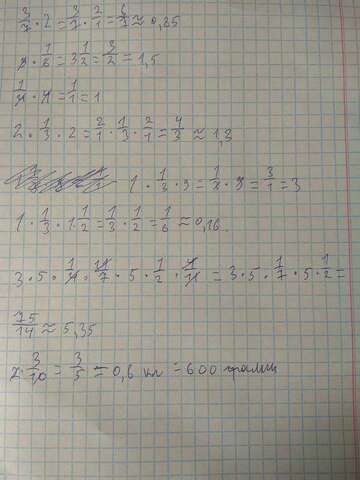 3/7 · 2 = 3/7 · 2/1 = 6/7 ≈ 0,85
9 · 1/6 = 3 1/2 = 3/2 = 1,5
1/4 · 4 = 1/1 = 1
2 · 1/3 · 2 = 2/1 · 1/3 · 2/1 = 4/3 ≈ 1,3
1 · 1/3 · 9 = 1/3 · 9 = 3/1 = 3
1 · 1/3 · 1 1/2 = 1/3 · 1/2 = 1/6 ≈ 0,16
3 · 5 · 1/4 · 11/7 · 5 · 1/2 · 4/11 = 3 · 5 · 1/7 · 5 · 1/2 =
75/14 ≈ 5,35
2 · 3/10 = 3/5 = 0,6 кг = 600 грамм